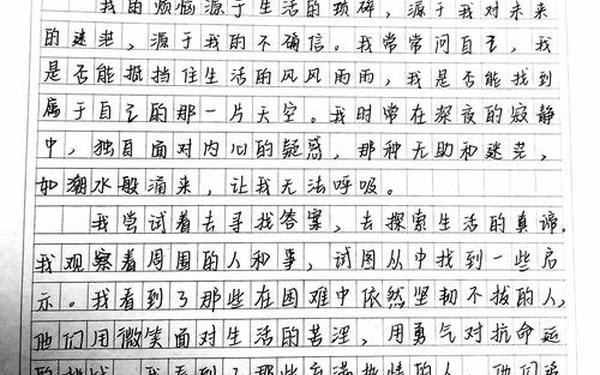 我的烦恼源于生活的琐碎，源于我对未来
的迷茫，源于我的不确信。我常常问自己，我
是否能抵挡住生活的风风雨雨，我是否能找到
属于自己的那一片天空。我时常在深夜的寂静
中，独自面对内心的疑惑，那种无助和迷茫，
如潮水般涌来，让我无法呼吸。
我尝试着去寻找答案，去探索生活的真谛。
我观察着周围的人和事，试图从中找到一些启
示。我看到了那些在困难中依然坚韧不拔的人，
他们用微笑面对生活的苦涩，用勇气对抗命运
的挑战。我看到了那些充满热情的人，他们